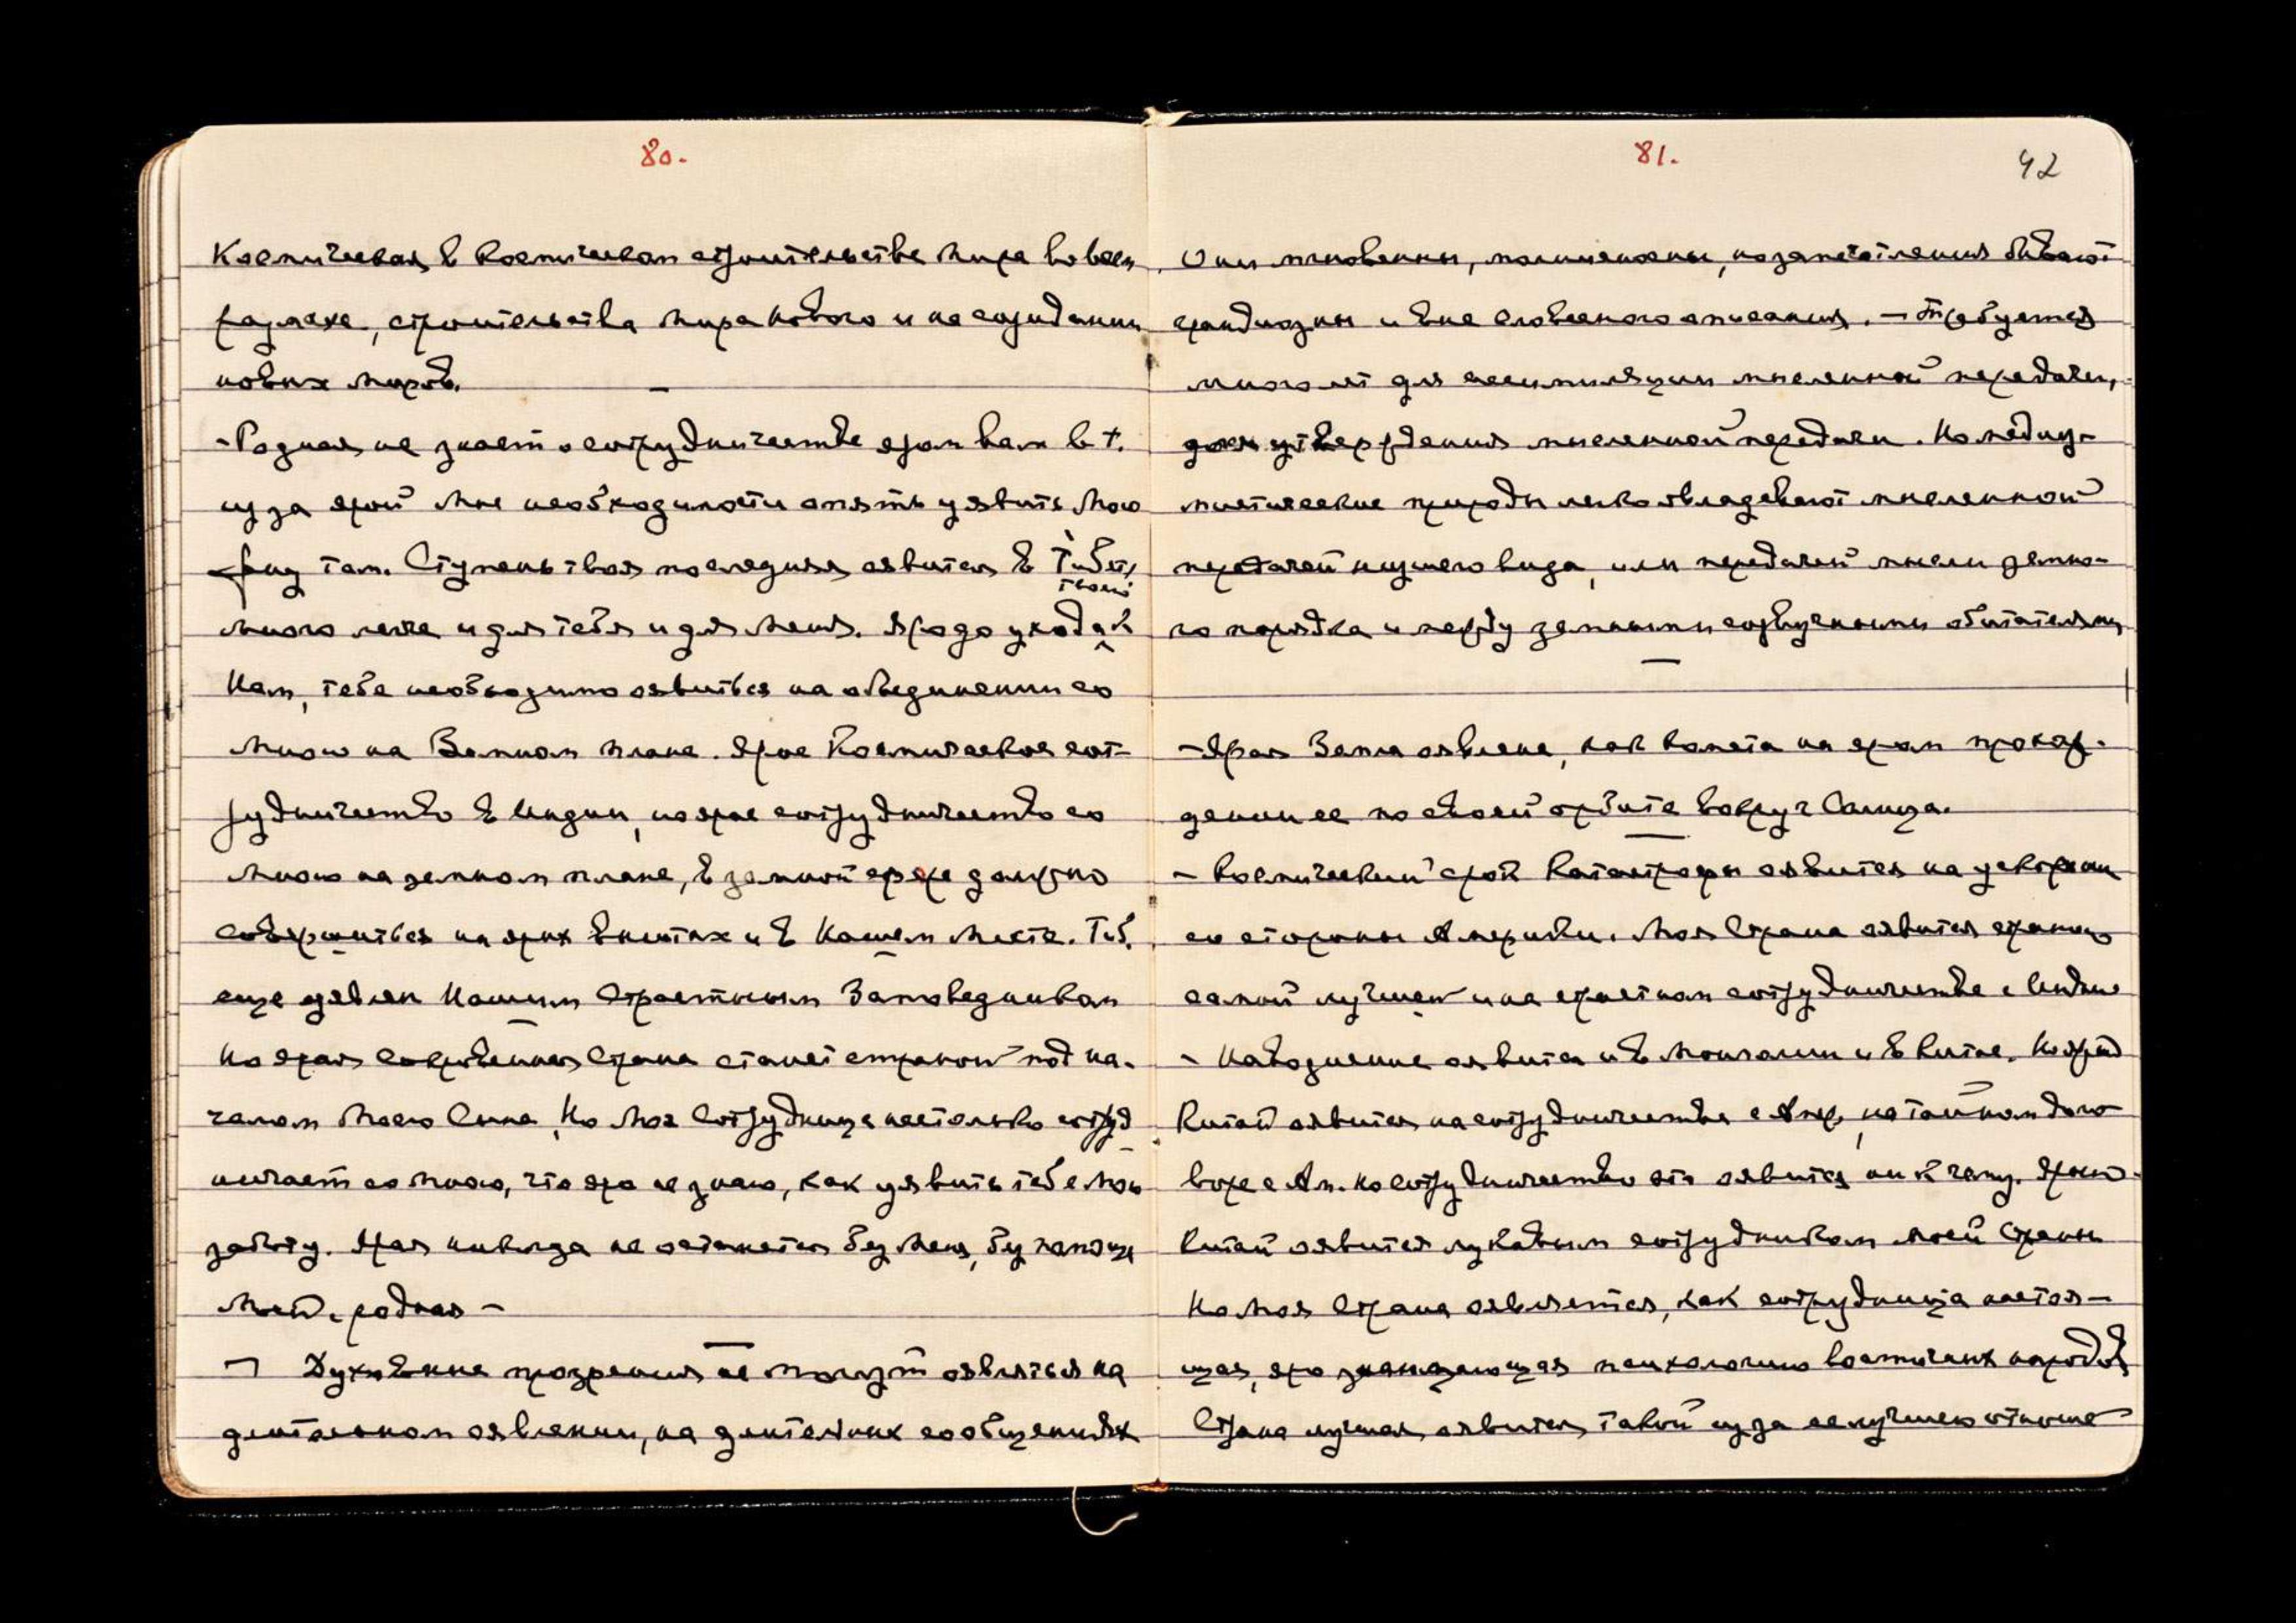 80.
Космическая в Космическом строительстве Мира во всем
размахе, строительства Мира Нового и на создании
новых миров.
- Родная не знает о сотрудничестве яром вам в т.
из за ярой Мне необходимости опять уявить Мою
там. Ступень твоя последняя явится в Тибете,
много легче и для тебя и для Меня. Яро до ухода твоего к
Нам, тебе необходимо оявиться на объединении со
Мною на Земном плане. Ярое Космическое сот-
рудничество в Индии, но ярое сотрудничество со
Мною на земном плане, в земной сфере должно
совершиться на ярых высотах и в Нашем Месте. Тиб.
еще уявлен Нашим Страстным Заповедником
Но ярая сокровенная Страна станет страной под на-
чалом Моего Сына, Но Моя Сотрудница настолько сотруд
ничает со Мною, что яро не знаю, как уявить тебе Мою
заботу. Ярая никогда не останется без Меня, без помощи
Моей, родная -
Духовные прозрения не могут оявляться на
длительном оявлении, на длительных сообщениях
81.
42
Они мгновенны, молниеносны, но запечатления бывают
грандиозны и вне словесного описания. - Требуется
много лет для ассимиляции мысленной передачи,
для утверждения мысленной передачи. Но медиу-
мистические природы легко овладевают мысленной
передачей низшего вида, или передачей мысли земно-
го порядка и между земными созвученными обитателями
- Ярая Земля оявлена, как комета на яром прохож-
дении ее по своей орбите вокруг Солнца.
- Космический срок Катастрофы оявится на ускорении
со стороны Америки. Моя Страна оявится страной
самой лучшей и на страстном сотрудничестве с Индией
- Наводнение оявится и в Монголии и в Китае. Но ярый
Китай оявится на сотрудничестве с Амер., на тайном дого
воре с Ам. Но сотрудничество это оявится ни к чему. Ярый
Китай оявится лукавым сотрудником Моей Страны
Но Моя Страна оявляется, как сотрудница настоя-
щая, яро знающая психологию восточных народов
Страна лучшая, оявится такой из за ее лучшего отноше